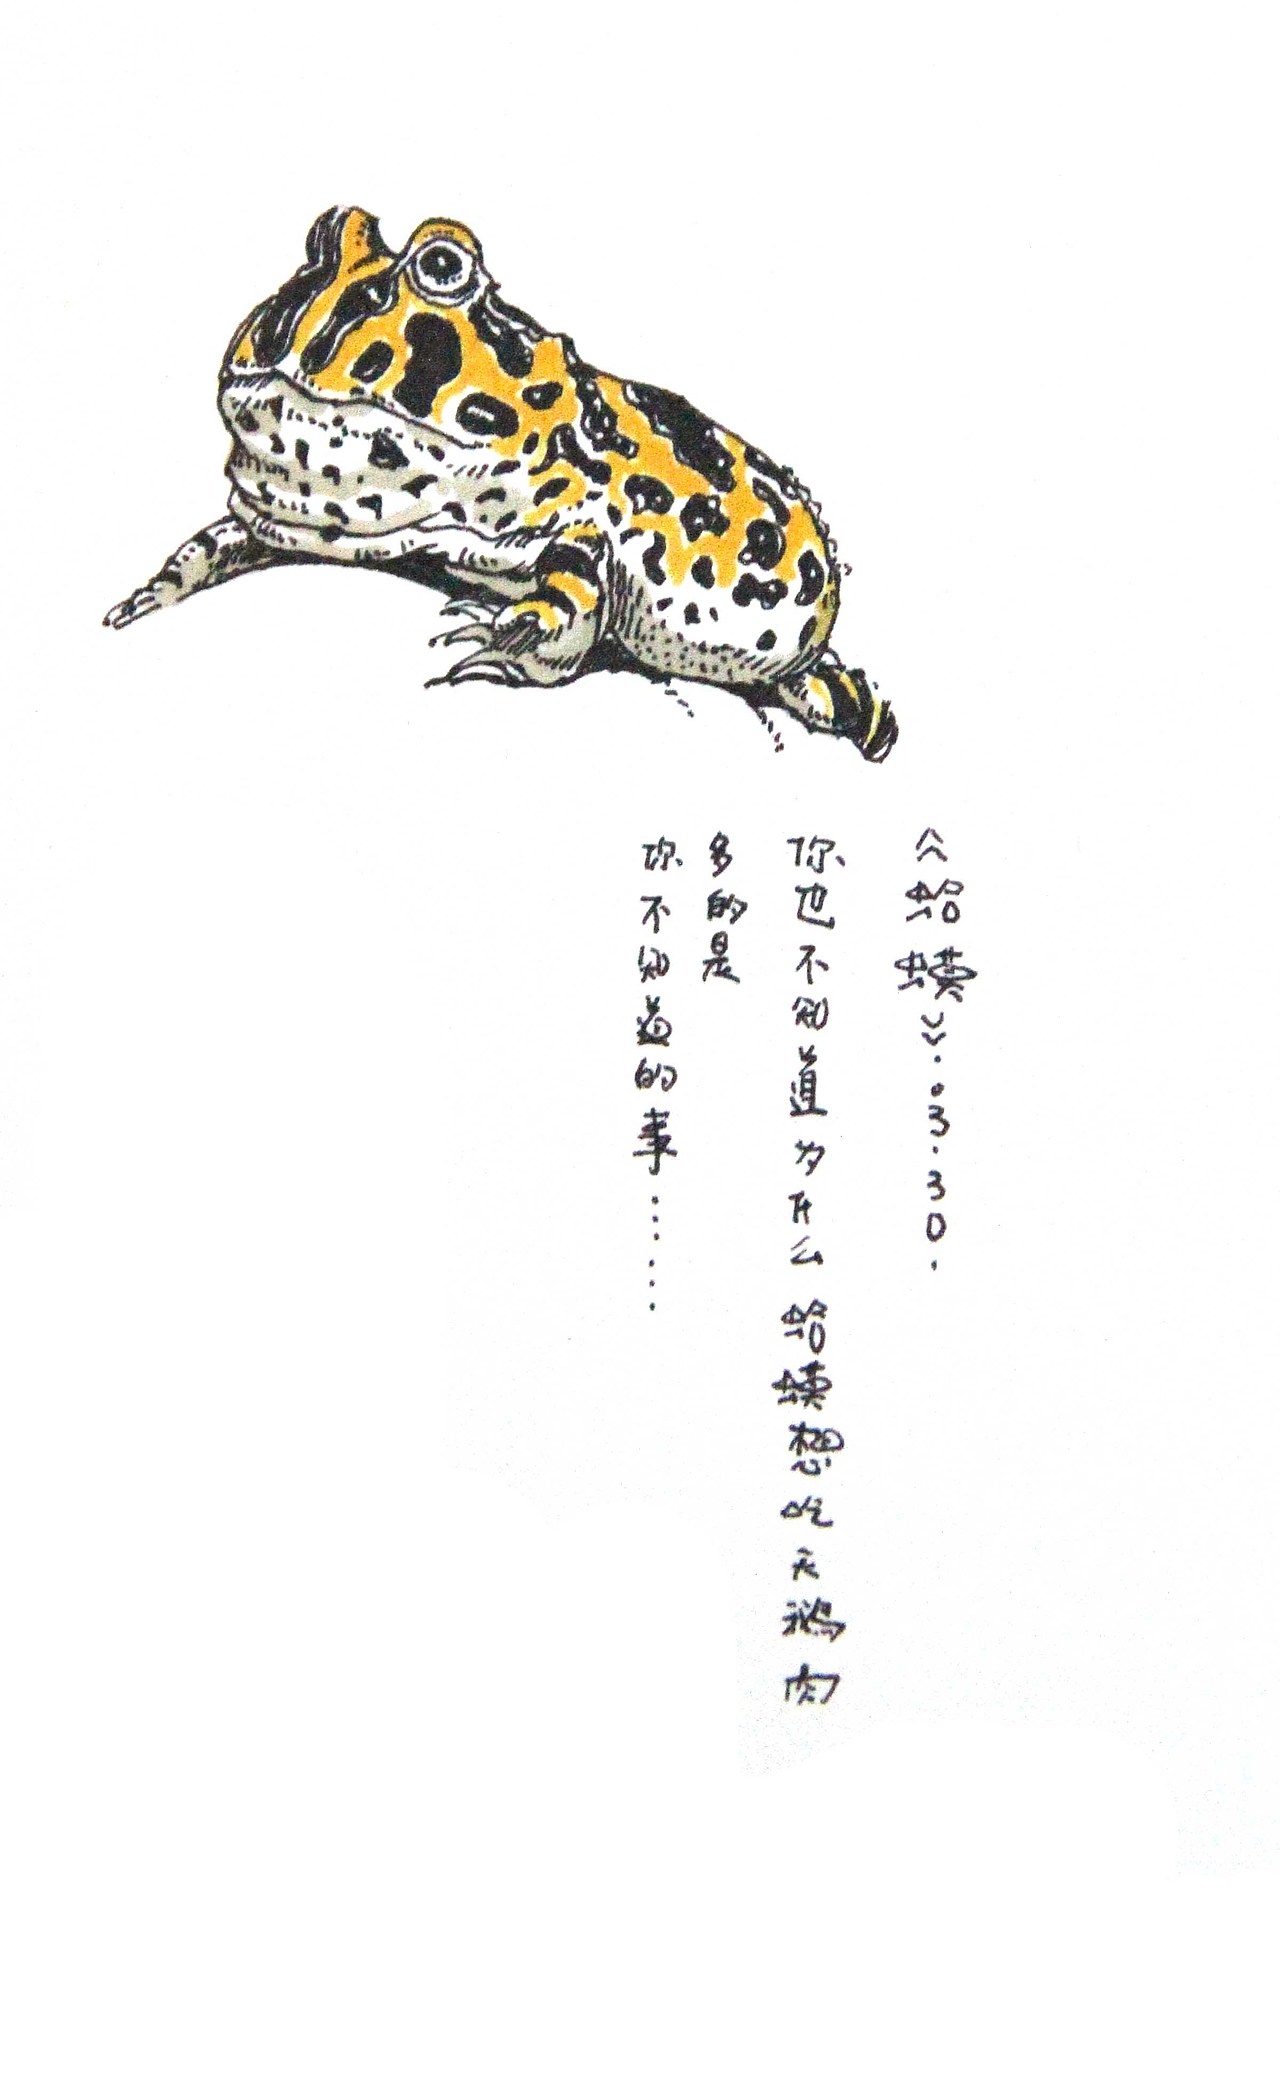 《蛤蟆》.03.30.
你也不知道为什么 蛤蟆想吃天鹅肉
多的是
你不知道的事……